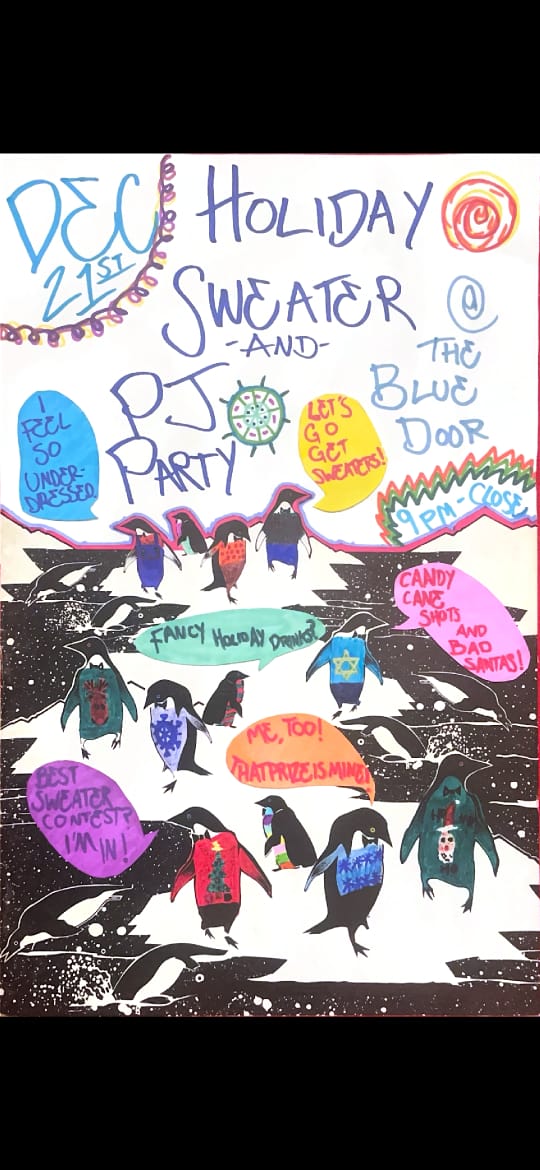 DEC
21ST
HOLIDAY
SWEATER
-AND-
PJ
PARTY
@
THE
BLUE
DOOR
9 PM - CLOSE
I
FEEL
SO
UNDER-
DRESSED
LET'S
GO
GET
SWEATERS!
CANDY
CANE
SHOTS
AND
BAD
SANTAS!
FANCY HOLIDAY DRINKS?
ME, TOO!
THAT PRIZE IS MINE!
BEST
SWEATER
CONTEST?
I'M IN!